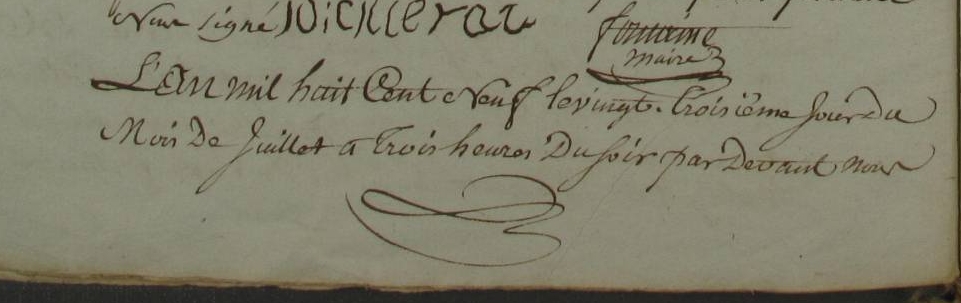 Nous signé Dickcerat
fontaine
maire
L'an mil huit Cent Neuf le vingt. troisieme jour Du
Mois De Juillet a trois heures Du soir par Devant nous